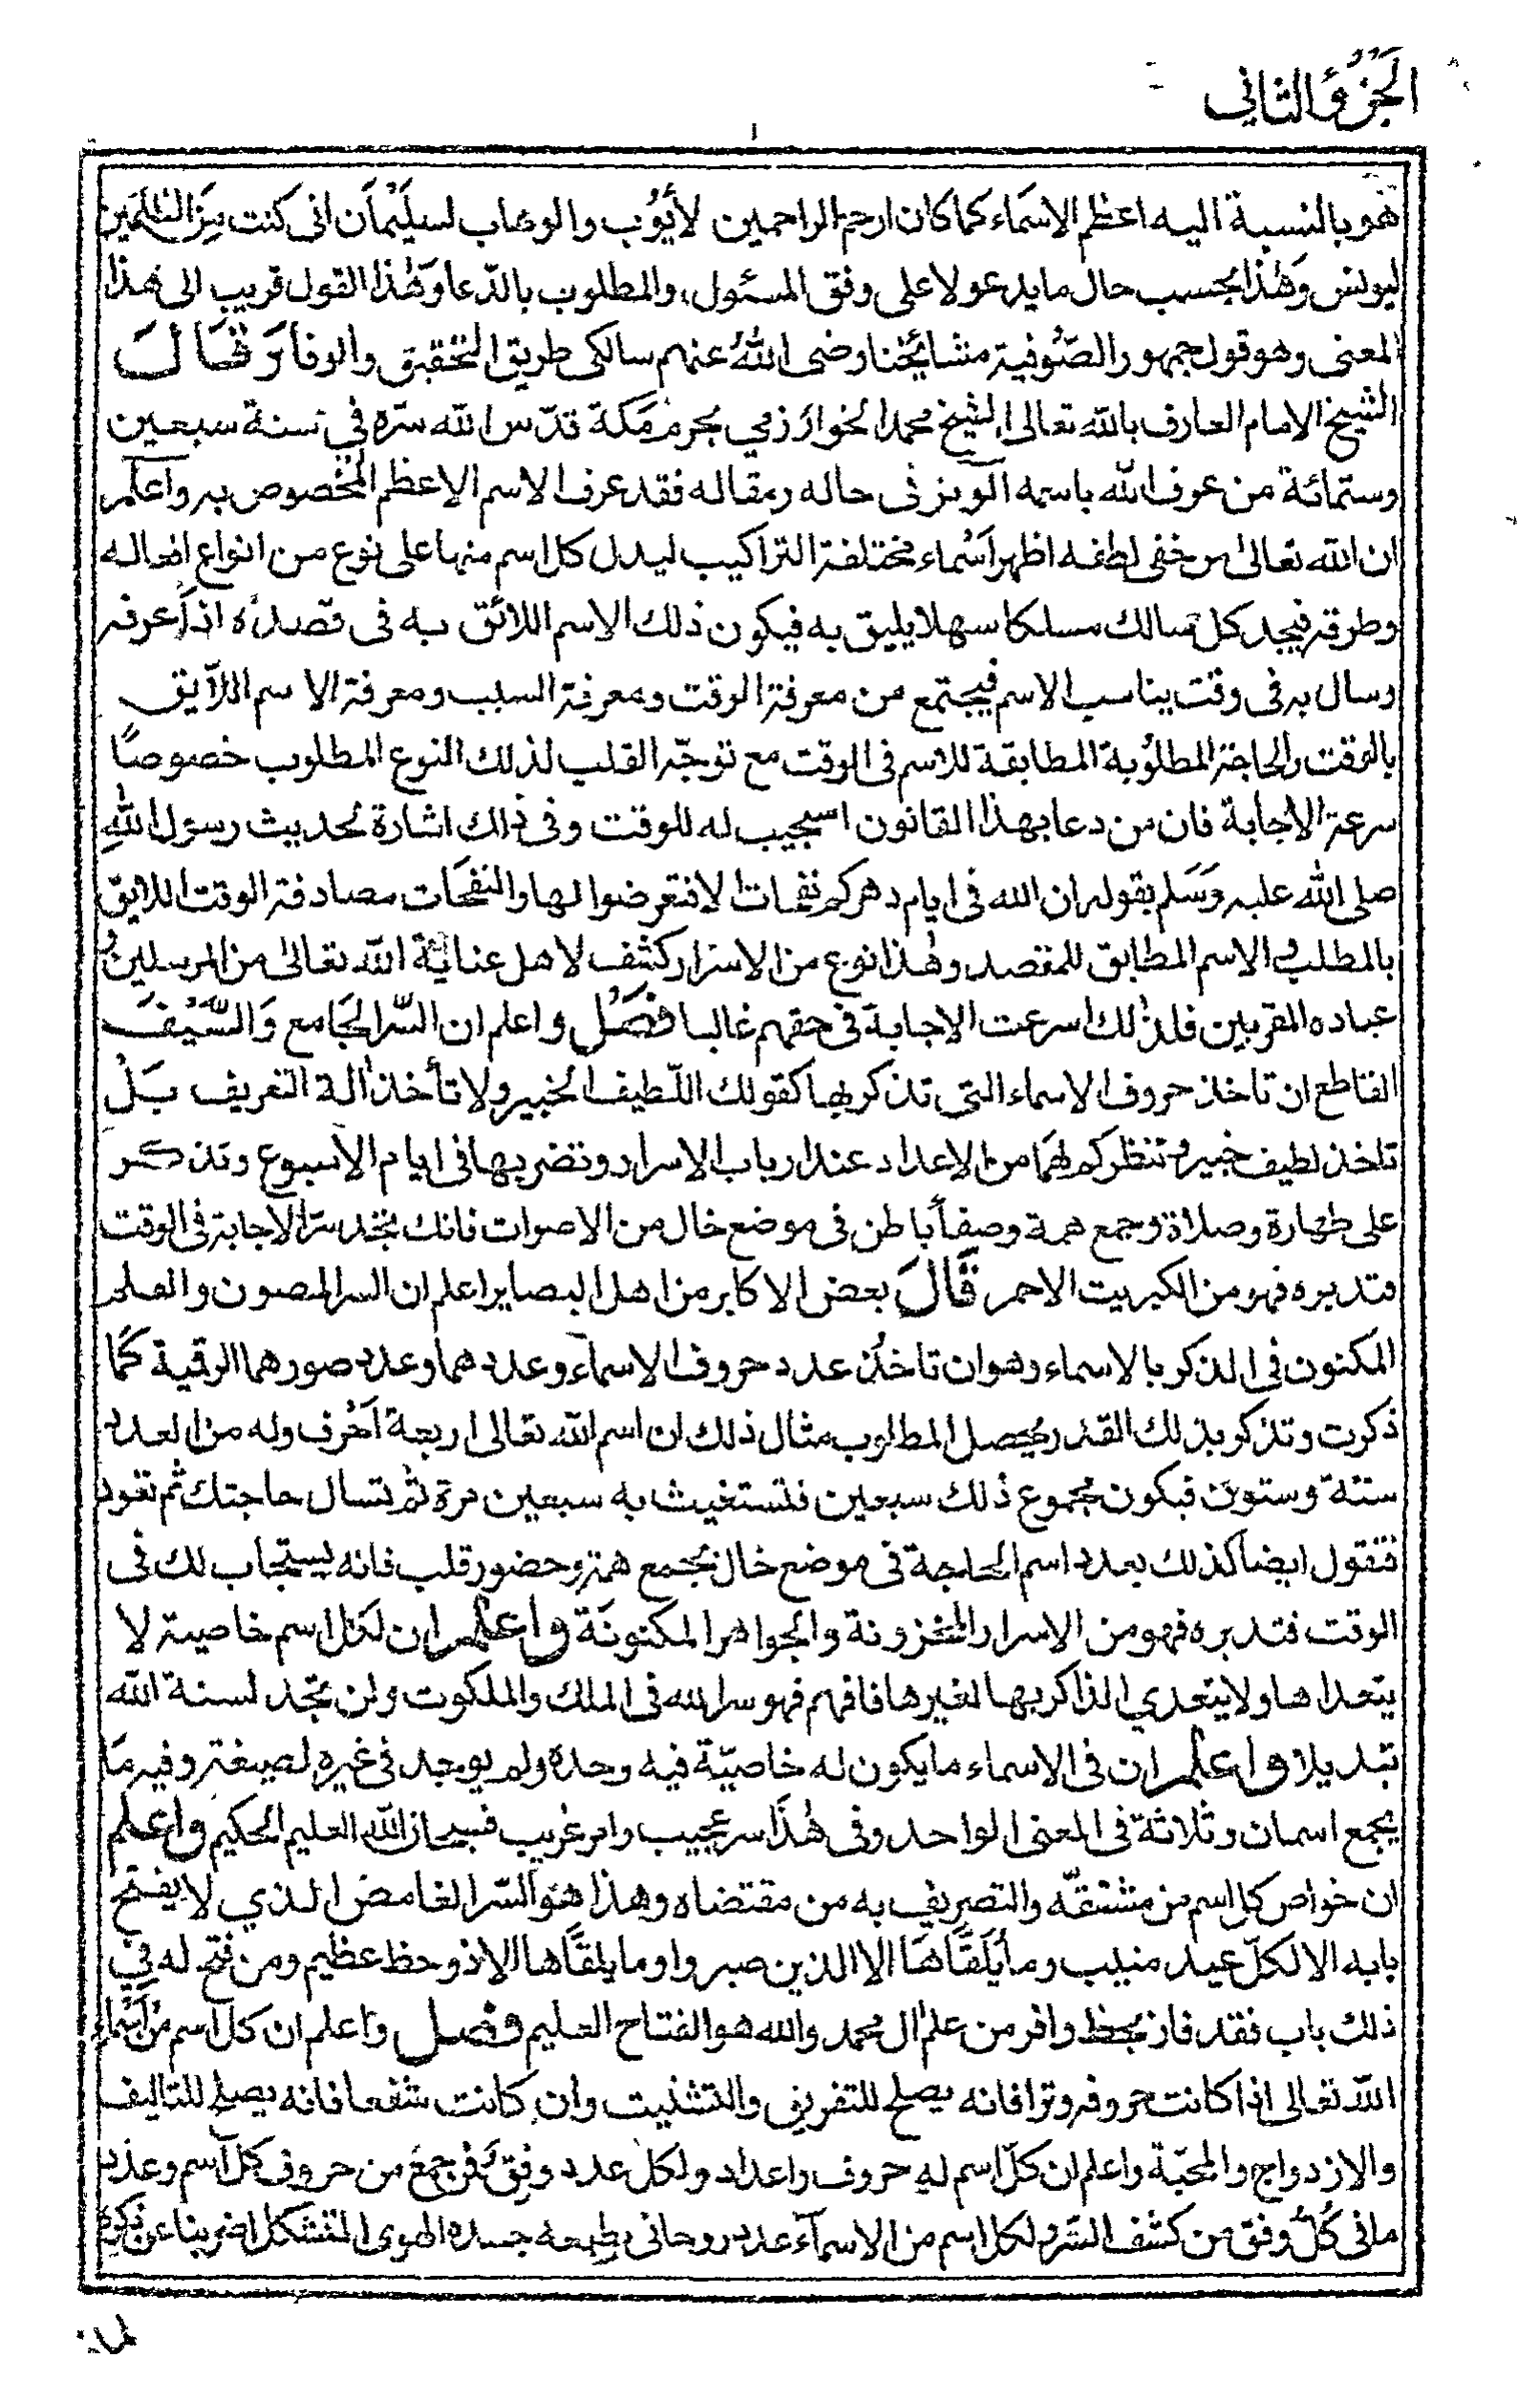 الجزؤ الثاني
هو بالنسبة اليه اعظم الاسماء كما كان ارحم الراحمين لأيوب والوهاب لسليمان انى كنت من الظلمين
ليونس وهذا بحسب حال ما يدعو لا على وفق المسئول والمطلوب بالدّعا وهذا القول قريب الى هذا
المعنى وهو قول جمهور الصّوفية مشائخنا رضى الله عنهم سالكى طريق التحقيق والوفا وقال
الشيخ الامام العارف بالله تعالى الشيخ محمد الخوارزمي بحرم مكة قدّس الله سرّه في سنة سبعين
وستمائة من عرف الله باسمه فى حاله ومقاله فقد عرف الاسم الاعظم المخصوص به واعلم
ان الله تعالى من خفى لطفه اظهر اسماء مختلفة التراكيب ليدل كل اسم منها على نوع من انواع افعاله
وطرقه فيجد كل سالك مسلكا سهلا يليق به فيكون ذلك الاسم اللائق به فى قصده اذا عرفه
وسال به فى وقت يناسب الاسم فيجتمع من معرفة الوقت ومعرفة السبب ومعرفة الاسم اللآيق
بالوقت والحاجة المطلوبة المطابقة للاسم فى الوقت مع توجّه القلب لذلك النوع المطلوب خصوصًا
سرعة الاجابة فان من دعا بهذا القانون استجيب له للوقت وفى ذلك اشارة لحديث رسول الله
صلى الله عليه وسلم بقوله ان الله فى ايام دهركم نفحات الا فتعرضوا لها والنفحات مصادفة الوقت اللايق
بالمطلب والاسم المطابق للمقصد وهذا نوع من الاسرار كشف لاهل عناية الله تعالى من المرسلين و
عباده المقربين فلذلك اسرعت الاجابة فى حقهم غالبا فصل واعلم ان السّر الجامع والسّيف
القاطع ان تاخذ حروف الاسماء التى تذكر بها كقولك اللّطيف الخبير ولا تأخذ الة التعريف بل
تاخذ لطيف خبير وتنظر كم لهما من الاعداد عند ارباب الاسرار وتضربها فى ايام الأسبوع وتذكر
على طهارة وصلاة وجمع همة وصفأ باطن فى موضع خال من الاصوات فانك تجد سرّ الاجابة فى الوقت
فتدبره فهو من الكبريت الاحمر قال بعض الاكابر من اهل البصاير اعلم ان السر المصون والعلم
المكنون فى الذكر بالاسماء وهو ان تاخذ عدد حروف الاسماء وعددهما وعدد صورهما الرقمية كما
ذكرت وتذكر بذلك القدر يحصل المطلوب مثال ذلك ان اسم الله تعالى اربعة احرف وله من العدد
ستة وستون فيكون مجموع ذلك سبعين فتستغيث به سبعين مرة ثم تسال حاجتك ثم تعود
فتقول ايضا كذلك بعدد اسم الحاجة فى موضع خال بجمع همة وحضور قلب فانه يستجاب لك فى
الوقت فتدبره فهو من الاسرار المخزونة والجواهر المكنونة واعلم ان لكل اسم خاصية لا
يتعداها ولا يتعدي الذاكر بها لغيرها فافهم فهو سر الله فى الملك والملكوت ولن تجد لسنة الله
تبديلا واعلم ان فى الاسماء ما يكون له خاصيّة فيه وحده ولم يوجد فى غيره لصيغته وفيه ما
يجمع اسمان وثلاثة فى المعنى الواحد وفى هذا سر عجيب وامر غريب فسبحان الله العليم الحكيم واعلم
ان خواص كل اسم من مشتقّه والتصريف به من مقتضاه وهذا هو السّر الغامض الذي لا يفتح
بابه الا لكلّ عبد منيب وما يلقّاها الا الذين صبروا وما يلقّاها الا ذو حظ عظيم ومن فتح له في
ذلك باب فقد فاز بحظ وافر من علم ال محمد والله هو الفتاح العليم فصل واعلم ان كل اسم من اسماء
الله تعالى اذا كانت حروفه وترا فانه يصلح للتفريق والتشتيت وان كانت شفعا فانه يصلح للتاليف
والازدواج والمحبّة واعلم ان كلّ اسم له حروف واعداد ولكل عدد وفق فمن جمع من حروف كل اسم وعدد
ما فى كل وفق من كشف السّر ولكل اسم من الاسمآء عدد روحانى بطبعه جسده الهوى المتشكل اضربنا عن ذكره